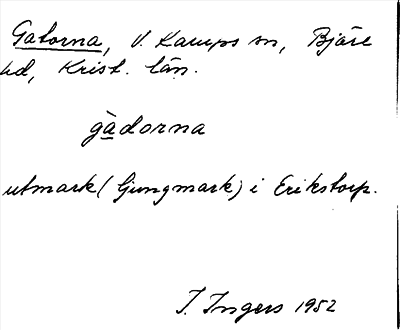 Gatorna, V. Karups sn, Bjäre
hd, Krist. län.
gàdorna
utmark (ljungmark) i Erikstorp.
I. Ingers 1952